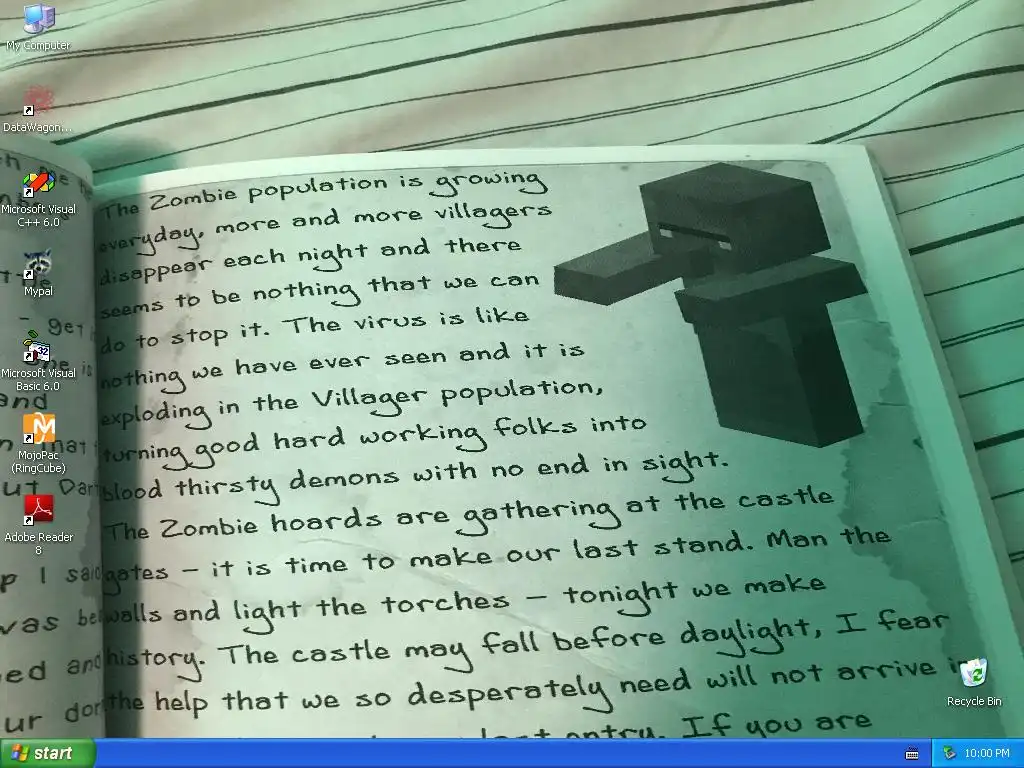 My Computer
DataWagon...
Microsoft Visual
C++ 6.0
Mypal
Microsoft Visual
Basic 6.0
MojoPac
(RingCube)
Adobe Reader
8
- get
and
ut
p I said
was
ed and
ur
The Zombie population is growing
everyday, more and more villagers
disappear each night and there
seems to be nothing that we can
do to stop it. The virus is like
nothing we have ever seen and it is
exploding in the Villager population,
turning good hard working folks into
blood thirsty demons with no end in sight.
The Zombie hoards are gathering at the castle
gates - it is time to make our last stand. Man the
walls and light the torches - tonight we make
history. The castle may fall before daylight, I fear
the help that we so desperately need will not arrive
entry. If you are
Recycle Bin
start
10:00 PM